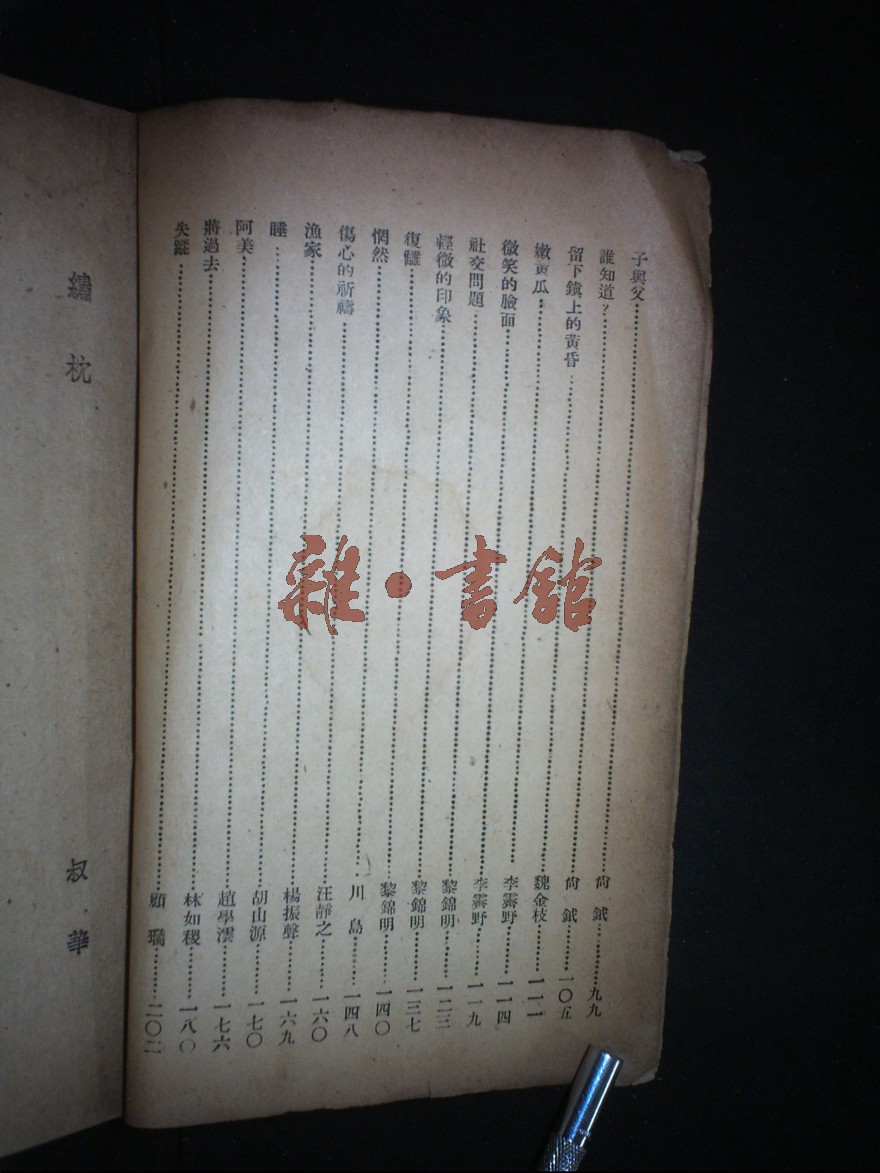 子與父……尚 鉞……九九
誰知道?……尚 鉞……一〇五
留下鎮上的黃昏……魏金枝……一一一
嫩黃瓜……李霽野……一一四
微笑的臉面……李霽野……一一九
社交問題……黎錦明……一二三
輕微的印象……黎錦明……一三七
復讎……黎錦明……一四〇
惘然……川 島……一四八
傷心的祈禱……汪靜之……一六〇
漁家……楊振聲……一六九
睡……胡山源……一七〇
阿美……趙澐……一七六
將過去……林如稷……一八〇
失蹤……顧……二〇二
繡枕
叔華
雜·書館